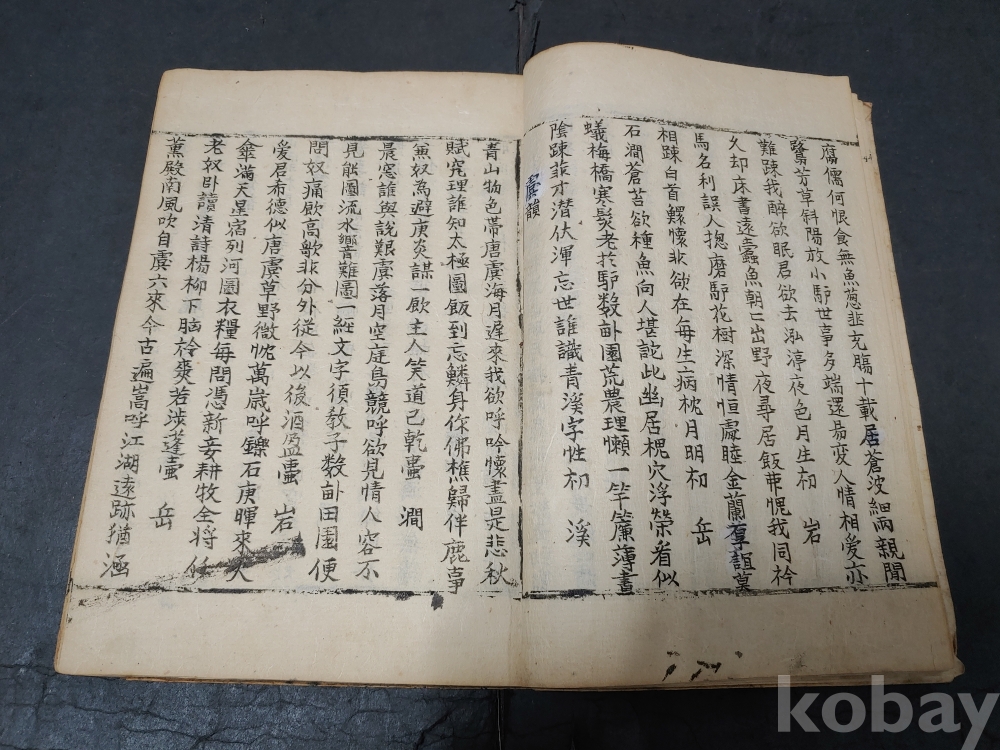 腐儒何恨食無魚葱韭充膓十載居蒼波細雨親閒
鷺芳草斜陽放小馿世事多端還易変人情相愛亦
難踈我醉欲眠君欲去泓渟夜色月生初　岩
久却床書遠蠹魚朝〻出野夜尋居飯苐愧我同衿
馬名利誤人揔磨馿花樹深情恒處睦金蘭厚誼莫
相踈白首鰥懷非欲在每生病枕月明初　岳
石澗蒼苔欲種魚向人堪詑此幽居槐穴浮榮看似
蟻梅橋寒髮老於馿数畝園荒農理懶一竿簾薄晝
陰踈菲才潜伏渾忘世誰識青溪字性初　溪
虞韻
青山物色帶唐虞海月遲來我欲呼吟懷盡是悲秋
賦究理誰知太極圖飯到忘鱗身作佛樵歸伴鹿事
無奴為避庚炎謀一飮主人笑道已乾壷　澗
晨窓誰與說艱虞落月空庭鳥競呼欲見情人容不
見能圖流水響難圖一經文字須敎子数畝田園便
問奴痛飮高歌非分外從今以後酒盈壷　岩
愛君希德似唐虞草野微忱萬歲呼鑠石庚暉來火
傘滿天星宿列河圖衣糧每問憑新妾耕牧全將任
老奴卧讀清詩楊柳下脑衿爽若涉蓬壷　岳
薰殿南風吹自虞六來今古遍嵩呼江湖遠跡猶涵
kobay